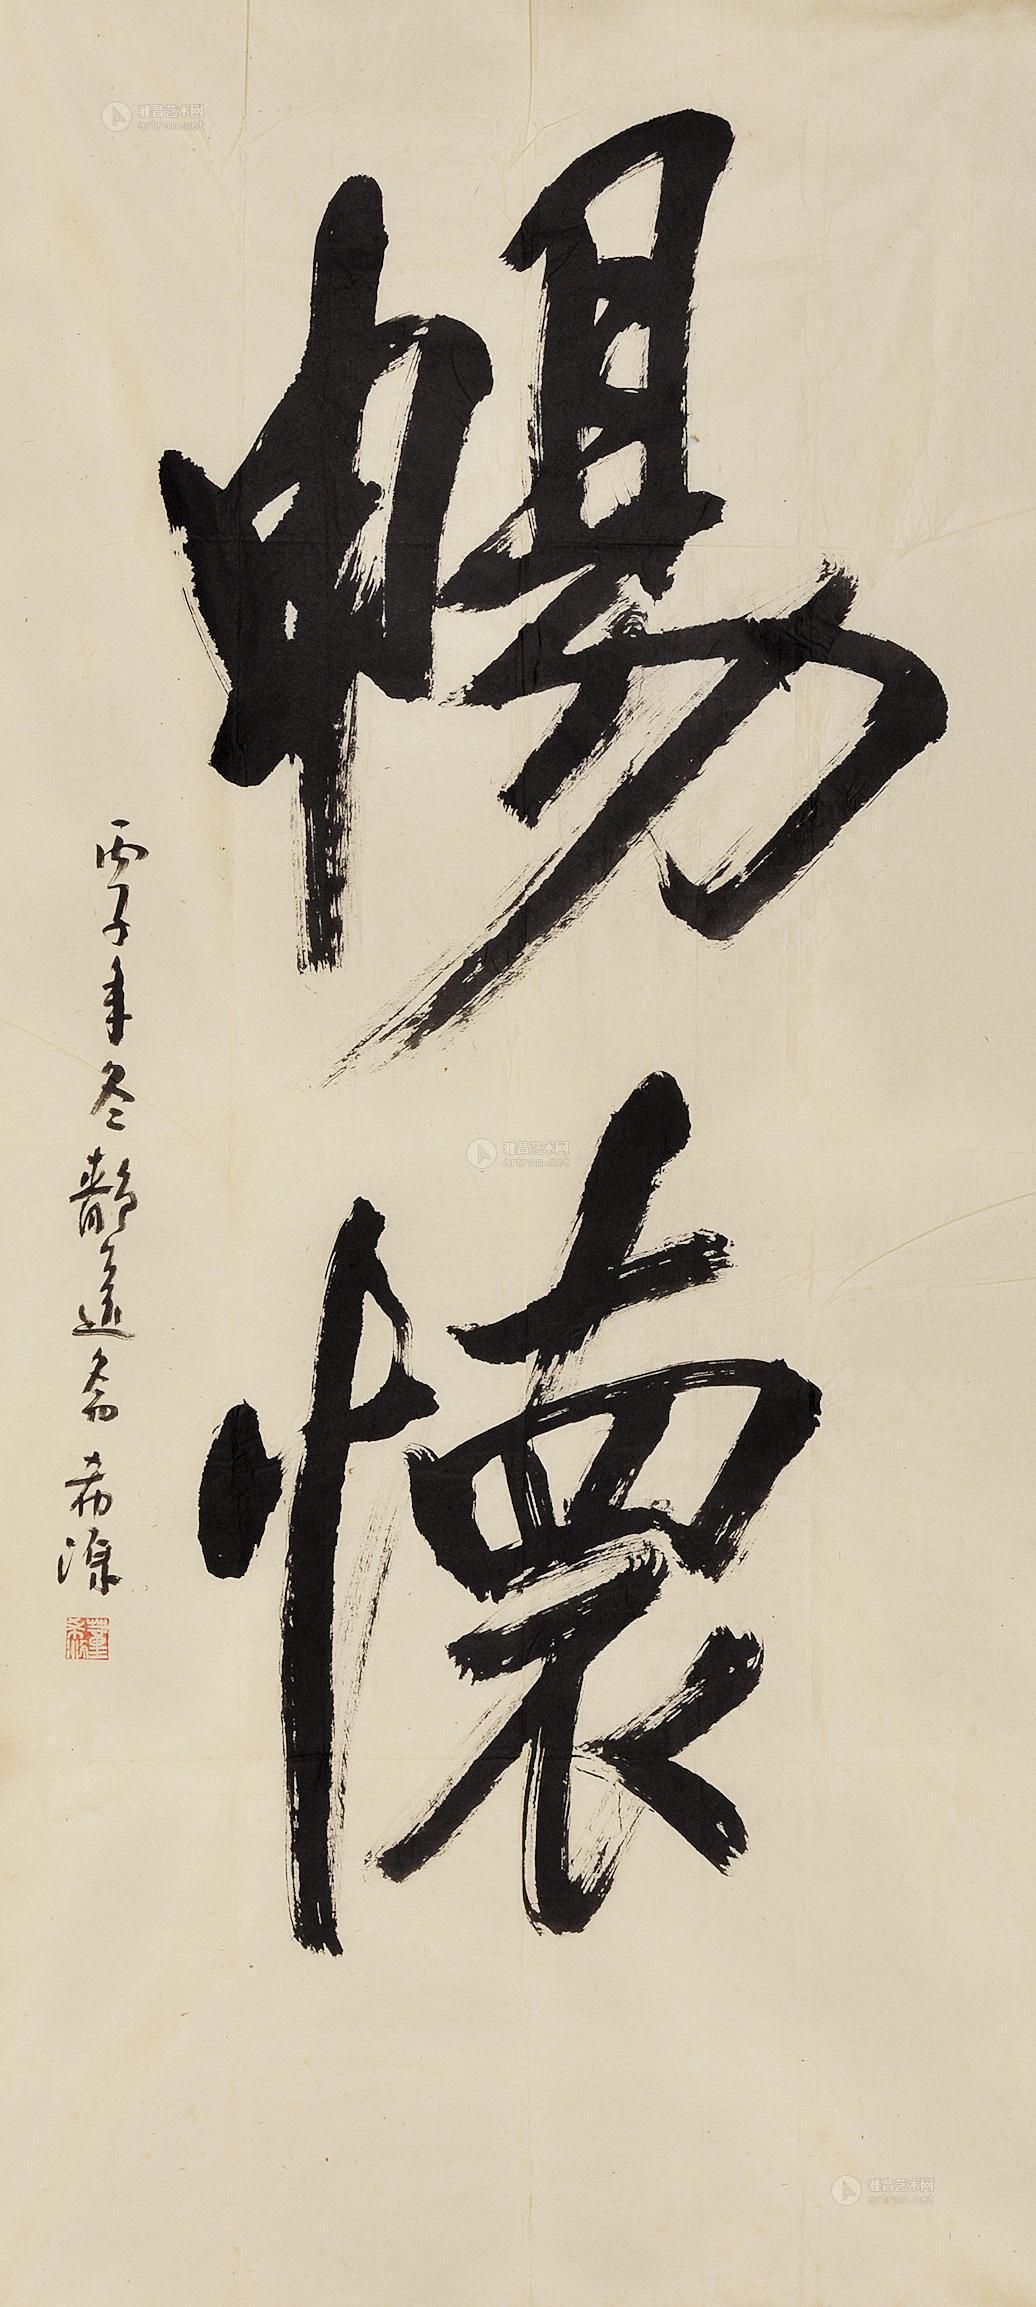 暢懷
丙子年冬靜遠齋希源
董希源
雅昌艺术网
artron.net
雅昌艺术网
artron.net
雅昌艺术网
artron.net